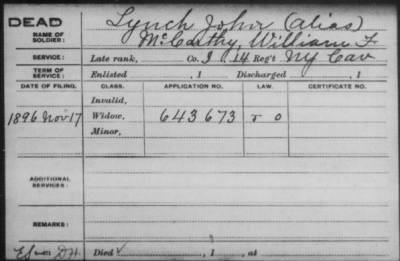 DEAD
Lynch John (alias)
NAME OF SOLDIER: McCarthy, William F.
SERVICE: Late rank, Co. I 14 Reg't NY Cav
TERM OF SERVICE: Enlisted , 1 Discharged , 1
DATE OF FILING. CLASS. APPLICATION NO. LAW. CERTIFICATE NO.
Invalid,
1896 Nov 17 Widow, 643673 o
Minor,
ADDITIONAL SERVICES:
REMARKS:
Died , 1 , at